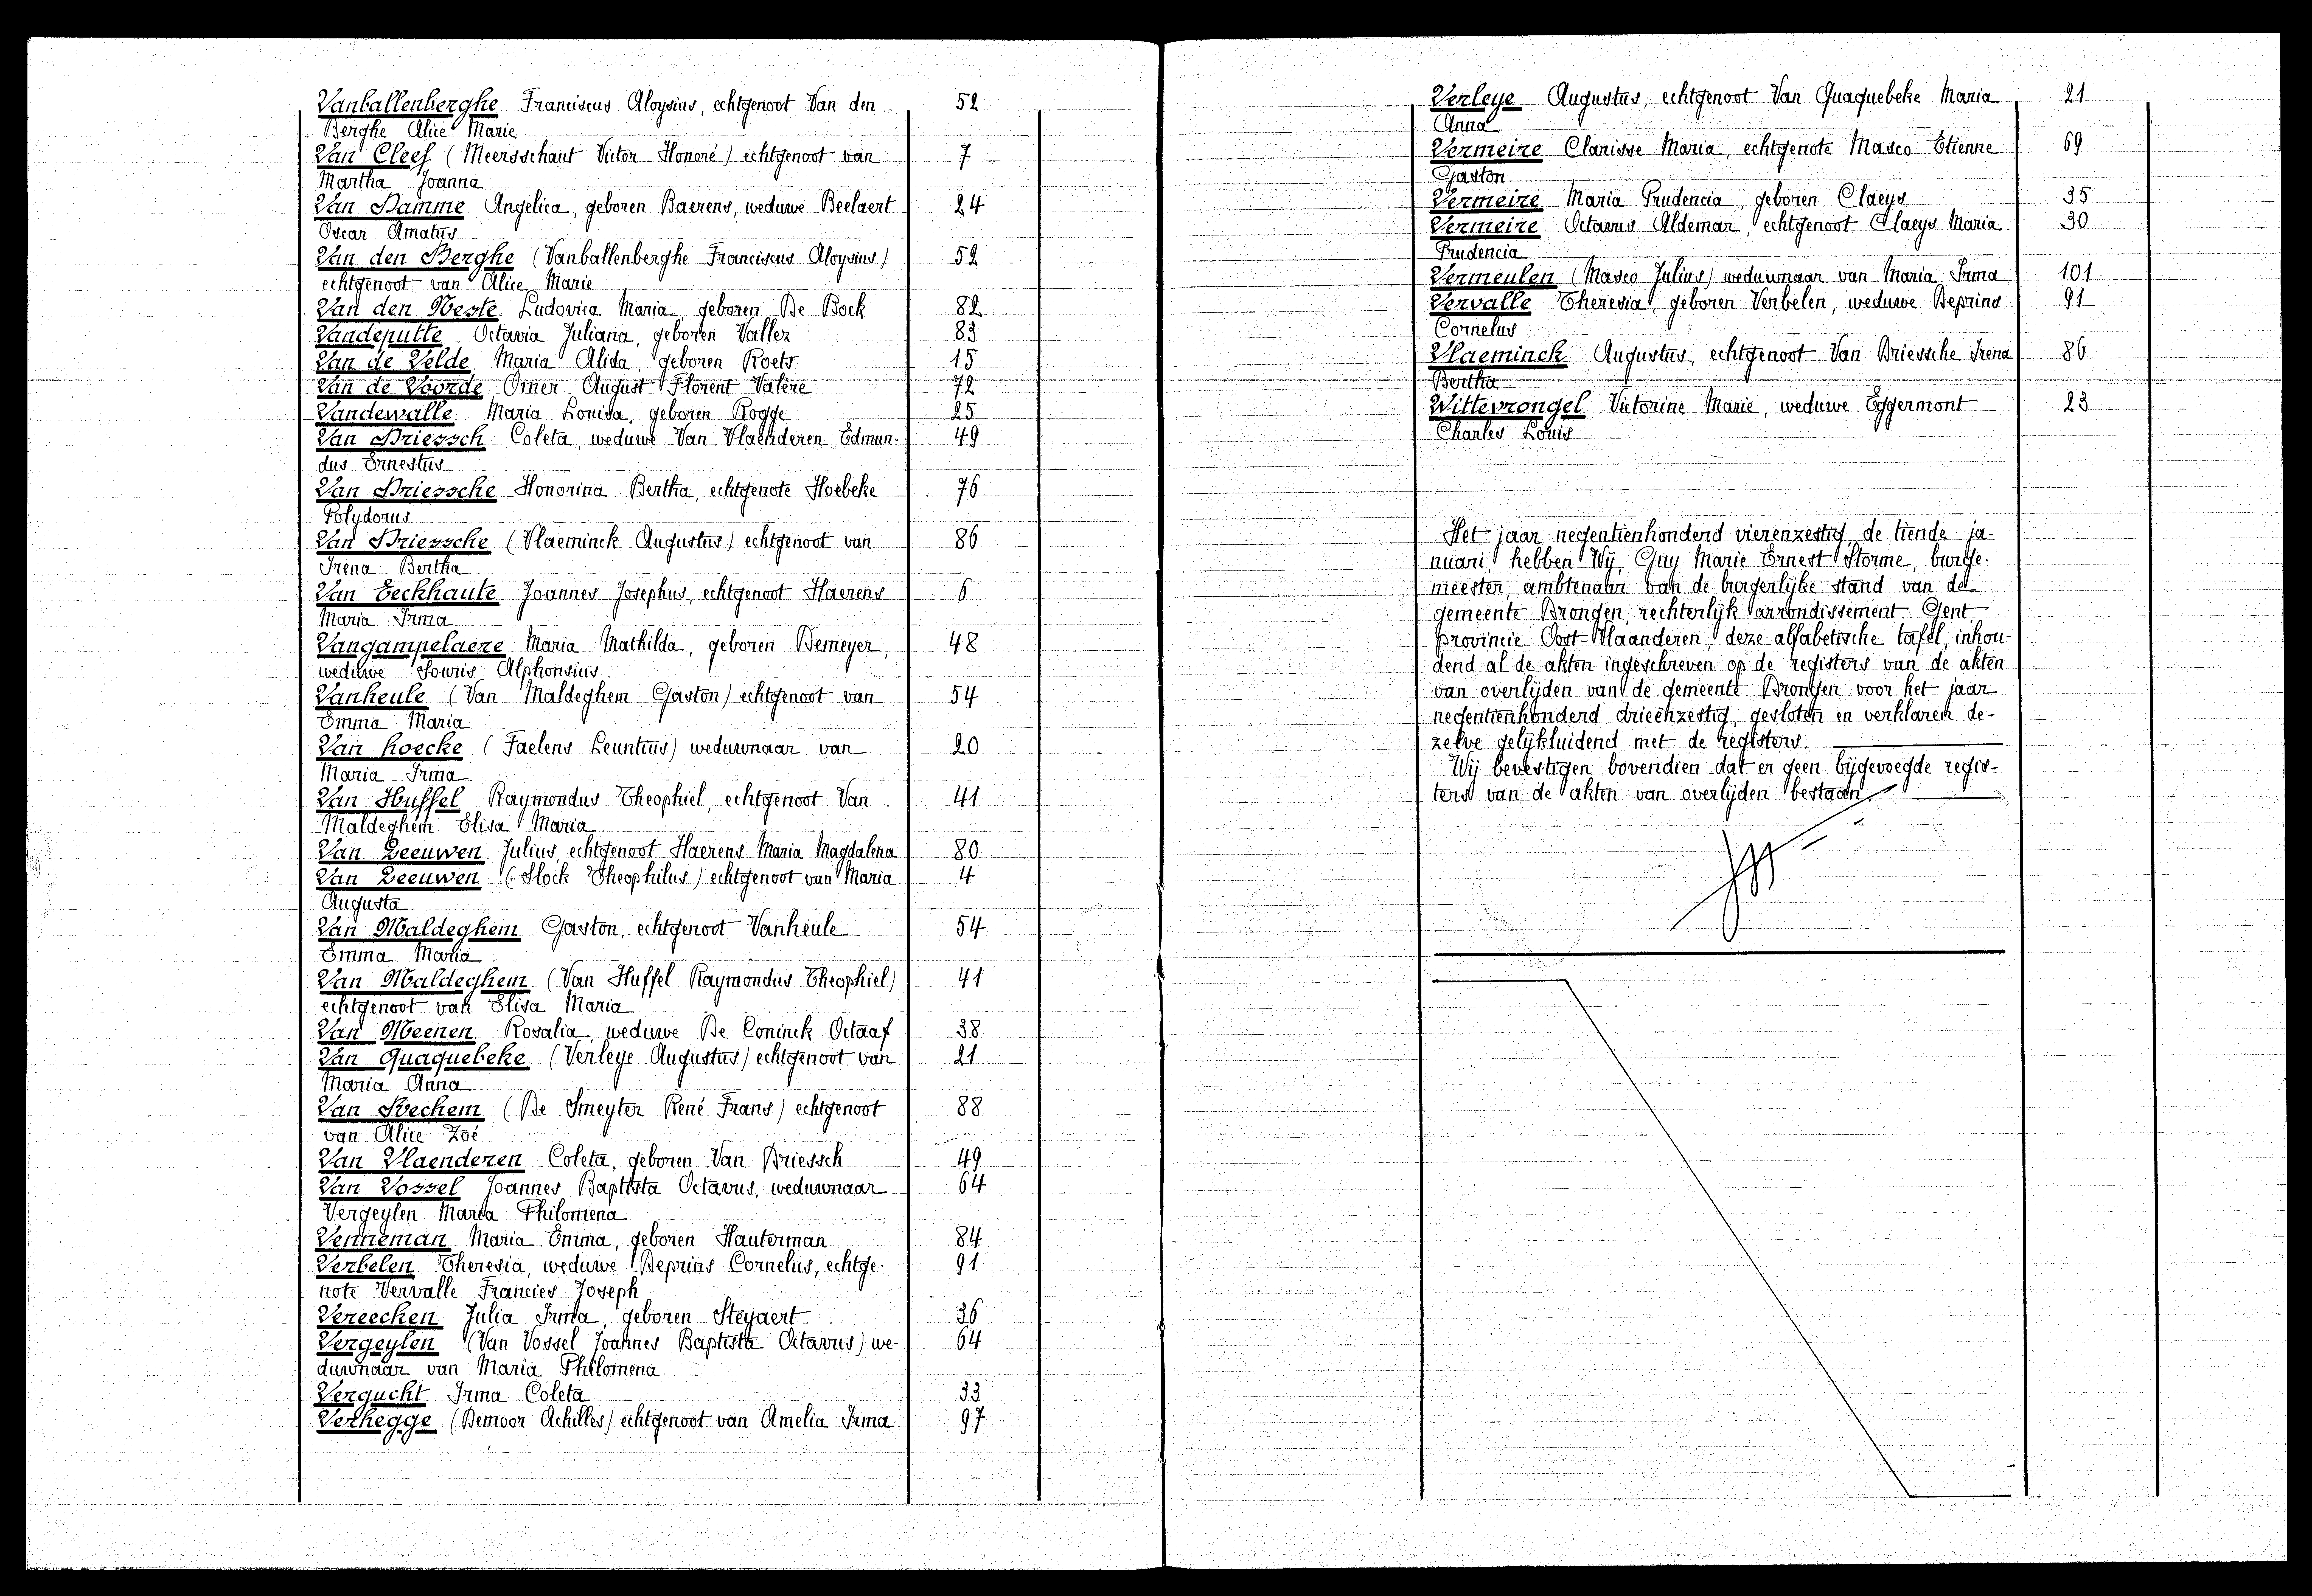 Vanballenberghe Franciscus Aloysius, echtgenoot Van den 52
Berghe Alice Marie
Van Cleef (Meersschaut Victor Honoré) echtgenoot van 7
Martha Joanna
Van Damme Angelica, geboren Baerens, weduwe Beelaert 24
Oscar Amatus
Van den Berghe (Vanballenberghe Franciscus Aloysius) 52
echtgenoot van Alice Marie
Van den Neste Ludovica Maria, geboren De Bock 82
Vandeputte Octavia Juliana, geboren Vallez 83
Van de Velde Maria Alida, geboren Roets 15
Van de Voorde Omer August Florent Valère 72
Vandewalle Maria Louisa, geboren Rogge 25
Van Driessch Coleta, weduwe Van Vlaenderen Edmun- 49
dus Ernestus
Van Driessche Honorina Bertha, echtgenote Hoebeke 76
Polydorus
Van Driessche (Vlaeminck Augustus) echtgenoot van 86
Irena Bertha
Van Eeckhaute Joannes Josephus, echtgenoot Haerens 6
Maria Irma
Vangampelaere Maria Mathilda, geboren Demeyer, 48
weduwe Souris Alphonsius
Vanheule (Van Maldeghem Gaston) echtgenoot van 54
Emma Maria
Van hoecke (Faelens Leuntius) weduwnaar van 20
Maria Irma
Van Huffel Raymondus Theophiel, echtgenoot Van 41
Maldeghem Elisa Maria
Van Leeuwen Julius, echtgenoot Haerens Maria Magdalena 80
Van Leeuwen (Slock Theophilus) echtgenoot van Maria 4
Augusta
Van Maldeghem Gaston, echtgenoot Vanheule 54
Emma Maria
Van Maldeghem (Van Huffel Raymondus Theophiel) 41
echtgenoot van Elisa Maria
Van Meenen Rosalia, weduwe De Coninck Octaaf 38
Van Quaquebeke (Verleye Augustus) echtgenoot van 21
Maria Anna
Van Svechem (De Smeyter René Frans) echtgenoot 88
van Alice Zoé
Van Vlaenderen Coleta, geboren Van Driessch 49
Van Vossel Joannes Baptista Octavus, weduwnaar 64
Vergeylen Maria Philomena
Venneman Maria Emma, geboren Hauterman 84
Verbelen Theresia, weduwe Deprins Cornelus, echtge- 91
note Vervalle Francies Joseph
Vereecken Julia Irma, geboren Steyaert 36
Vergeylen (Van Vossel Joannes Baptista Octavus) we- 64
duwnaar van Maria Philomena
Vergucht Irma Coleta 33
Verhegge (Demoor Achilles) echtgenoot van Amelia Irma 97
Verleye Augustus, echtgenoot Van Quaquebeke Maria 21
Anna
Vermeire Clarisse Maria, echtgenote Masco Etienne 69
Gaston
Vermeire Maria Prudencia, geboren Claeys 35
Vermeire Octavus Aldemar, echtgenoot Claeys Maria 30
Prudencia
Vermeulen (Masco Julius) weduwnaar van Maria Irma 101
Vervalle Theresia, geboren Verbelen, weduwe Deprins 91
Cornelus
Vlaeminck Augustus, echtgenoot Van Driessche Irena 86
Bertha
Wittevrongel Victorine Marie, weduwe Eggermont 23
Charles Louis
Het jaar negentienhonderd vierenzestig, de tiende ja-
nuari, hebben Wij, Guy Marie Ernest Storme, burge-
meester, ambtenaar van de burgerlijke stand van de
gemeente Drongen, rechterlijk arrondissement Gent,
provincie Oost-Vlaanderen, deze alfabetische tafel, inhou-
dend al de akten ingeschreven op de registers van de akten
van overlijden van de gemeente Drongen voor het jaar
negentienhonderd drieënzestig, gesloten en verklaren de-
zelve gelijkluidend met de registers.
Wij bevestigen bovendien dat er geen bijgevoegde regis-
ters van de akten van overlijden bestaan.